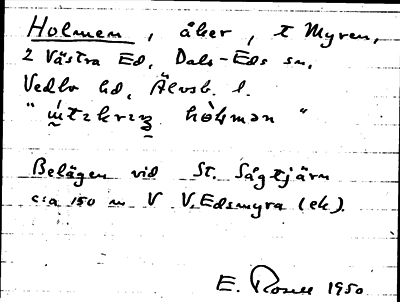 Holmen, åker, t Myren,
2 Västra Ed, Dals-Eds sn,
Vedbo hd, Älvsb. l.
" hòlmən "
Belägen vid St. Sågtjärn
c:a 150 m V V. Edsmyra (ek).
E. Rosell 1950